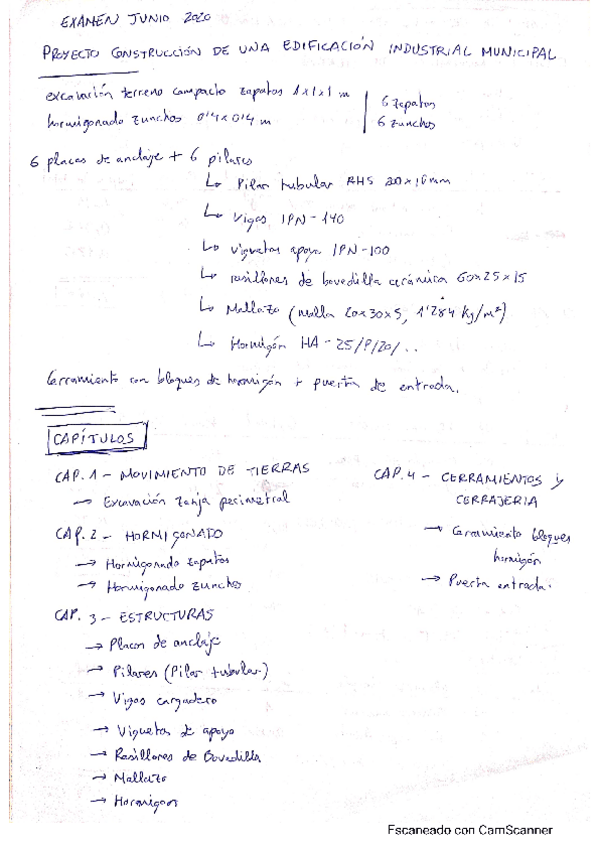 EXAMEN JUNIO 2020
PROYECTO CONSTRUCCIÓN DE UNA EDIFICACIÓN INDUSTRIAL MUNICIPAL
excavación terreno compacto zapatas 1x1x1 m
6 zapatas
hormigonado zunchos 0'4x0'4 m
6 zunchos
6 placas de anclaje + 6 pilares
Pilar tubular RHS
Vigas IPN-140
viguetas apoyo IPN-100
rasillones de bovedilla cerámica 60x25x15
Mallazo (malla 20x30x5, 1'284 kg/m²)
Hormigón HA-25/P/20/..
Cerramiento con bloques de hormigón + puerta de entrada.
CAPÍTULOS
CAP. 1 - MOVIMIENTO DE TIERRAS
→ Excavación zanja perimetral
CAP. 2 - HORMIGONADO
→ Hormigonado zapatas
→ Hormigonado zunchos
CAP. 3 - ESTRUCTURAS
→ Placas de anclaje
→ Pilares (Pilar tubular)
→ Vigas cargadero
→ Viguetas de apoyo
→ Rasillones de Bovedilla
→ Mallazo
→ Hormigon
CAP. 4 - CERRAMIENTOS y
CERRAJERIA
→ Cerramiento bloques
hormigón
→ Puerta entrada.
Escaneado con CamScanner